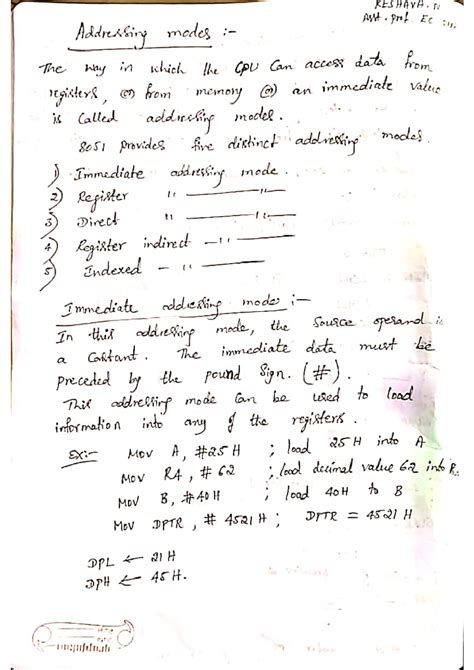 KESHAVA. N
Asst. prof. EC
Addressing modes :-
The way in which the CPU can access data from
registers, (or) from memory (or) an immediate value
is called addressing modes.
8051 provides five distinct addressing modes.
1) Immediate addressing mode.
2) Register —"— —"—
3) Direct —"— —"—
4) Register indirect —"—
5) Indexed —"—
Immediate addressing mode :-
In this addressing mode, the source operand is
a constant. The immediate data must be
preceded by the pound sign. (#).
This addressing mode can be used to load
information into any of the registers.
Ex:- MOV A, #25H ; load 25H into A
MOV R4, #62 ; load decimal value 62 into R
MOV B, #40H ; load 40H to B
MOV DPTR, #4521H ; DPTR = 4521H
DPL ← 21H
DPH ← 45H.